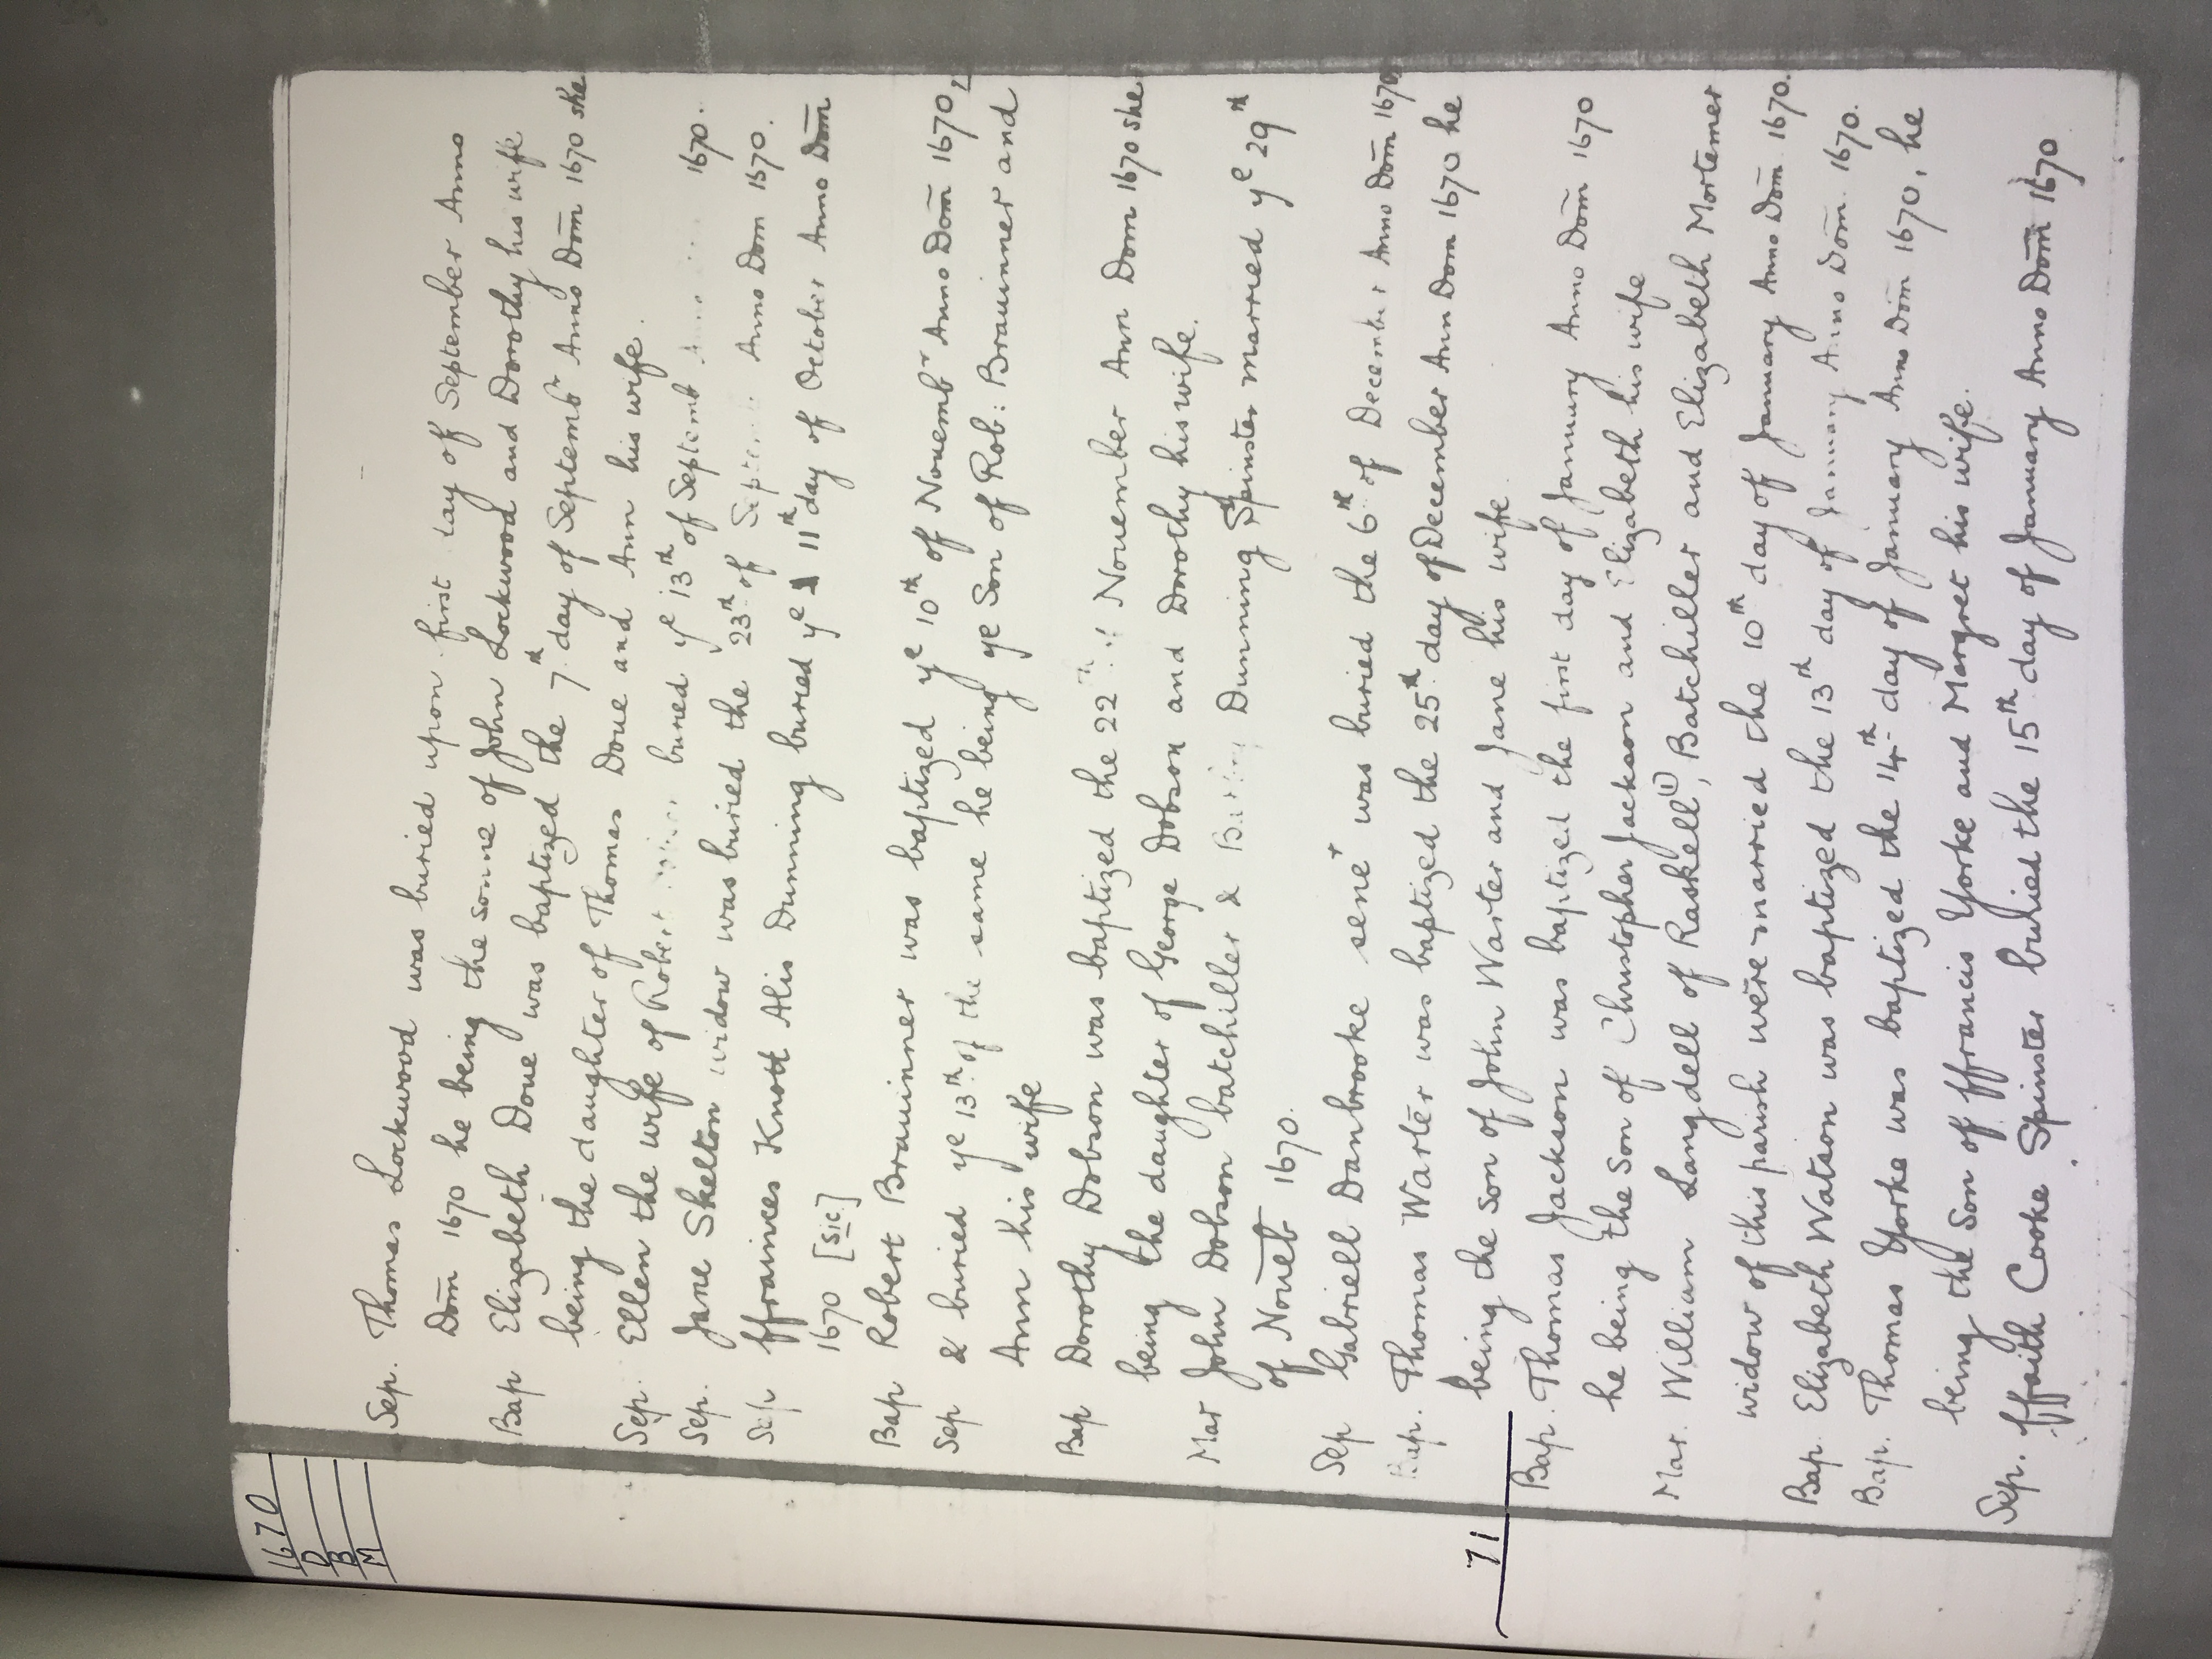 1670
D
B
M
Sep. Thomas Lockwood was buried upon first day of September Anno
Dom̄ 1670 he being the sonne of John Lockwood and Dorothy his wife
Bap Elizabeth Doue was baptized the 7th day of Septembr Anno Dom̄ 1670 she
being the daughter of Thomas Doue and Ann his wife.
Sep. Ellen the wife of Robert buried ye 13th of Septemb 1670.
Sep. Jane Skelton widow was buried the 23th of Septemb Anno Dom 1670.
Sep ffrainces Knott Alis Dunning buried ye 11th day of October Anno Dom̄
1670 [sic]
Bap Robert Brauinner was baptized ye 10th of Nouembr Anno Dom̄ 1670,
Sep & buried ye 13th of the same he being ye Son of Rob: Brauinner and
Ann his wife
Bap Dorothy Dobson was baptized the 22th of Nouember Ann Dom 1670 she
being the daughter of George Dobson and Dorothy his wife.
Mar John Dobson batchiller & Dunning Spinster married ye 29th
of Nouēb 1670.
Sep Gabriell Danbrooke sener was buried the 6th of December Anno Dom̄ 1670
Bap. Thomas Warter was baptized the 25th day of December Ann Dom 1670 he
being the son of John Warter and Jane his wife.
71
Bap. Thomas Jackson was baptized the first day of January Anno Dom̄ 1670
he being the Son of Christopher Jackson and Elizabeth his wife
Mar. William Langdell of Raskell(1), Batchiller and Elizabeth Mortemer
widow of this parish were married the 10th day of January Anno Dom̄ 1670.
Bap. Elizabeth Watson was baptized the 13th day of January Anno Dom̄. 1670.
Bap. Thomas Yorke was baptized the 14th day of January Anno Dom̄ 1670, he
being the Son of ffrancis Yorke and Margret his wife.
Sep. ffaith Cooke Spinster buried the 15th day of January Anno Dom̄ 1670